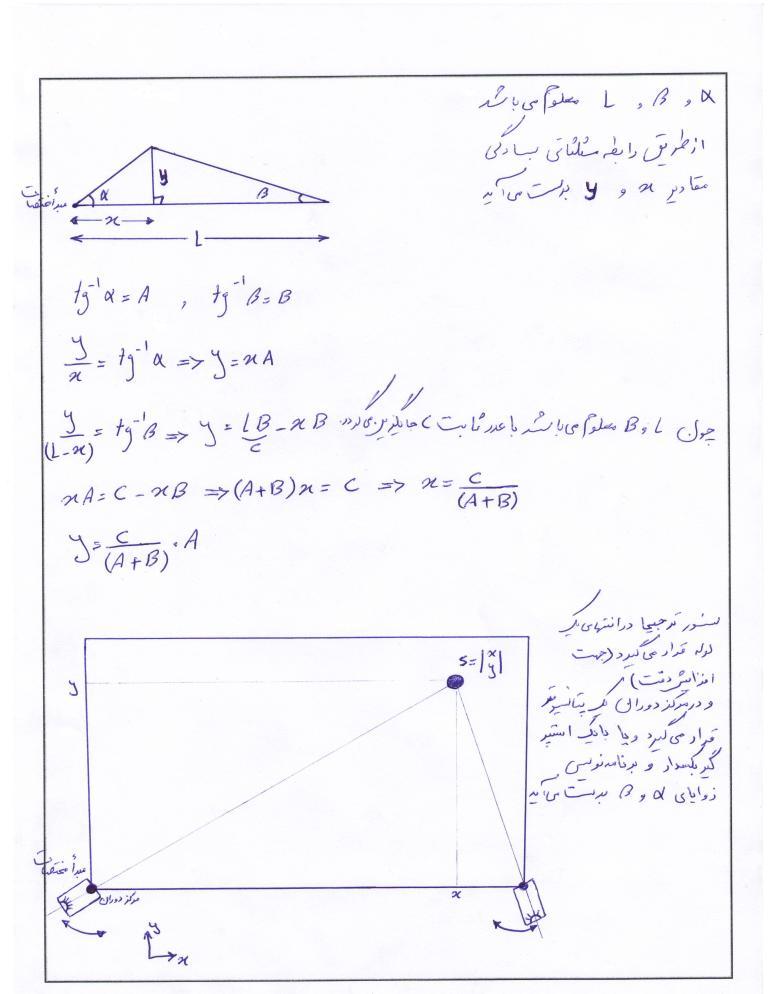 α و β و L معلوم می باشد
از طریق رابطه مثلثاتی بسادگی
مقادیر x و y بدست می آید
y
α
β
مبدأ مختصات
x
L
tg⁻¹ α = A , tg⁻¹ β = B
y/x = tg⁻¹ α => y = xA
y/(L-x) = tg⁻¹ β => y = LB - xB چون L و B معلوم می باشد با عدد ثابت C جایگزین می گردد
C
xA = C - xB => (A+B)x = C => x = C/(A+B)
y = C/(A+B) · A
سنسور ترجیحا در انتهای یک
لوله قرار می گیرد (جهت
افزایش دقت)
و در مرکز دوران یک پتانسیومتر
قرار می گیرد و یا با یک استپر
گیربکسدار و برنامه نویسی
زوایای α و β بدست می آید
S = |x y|
y
مبدأ مختصات
مرکز دوران
x
y
x